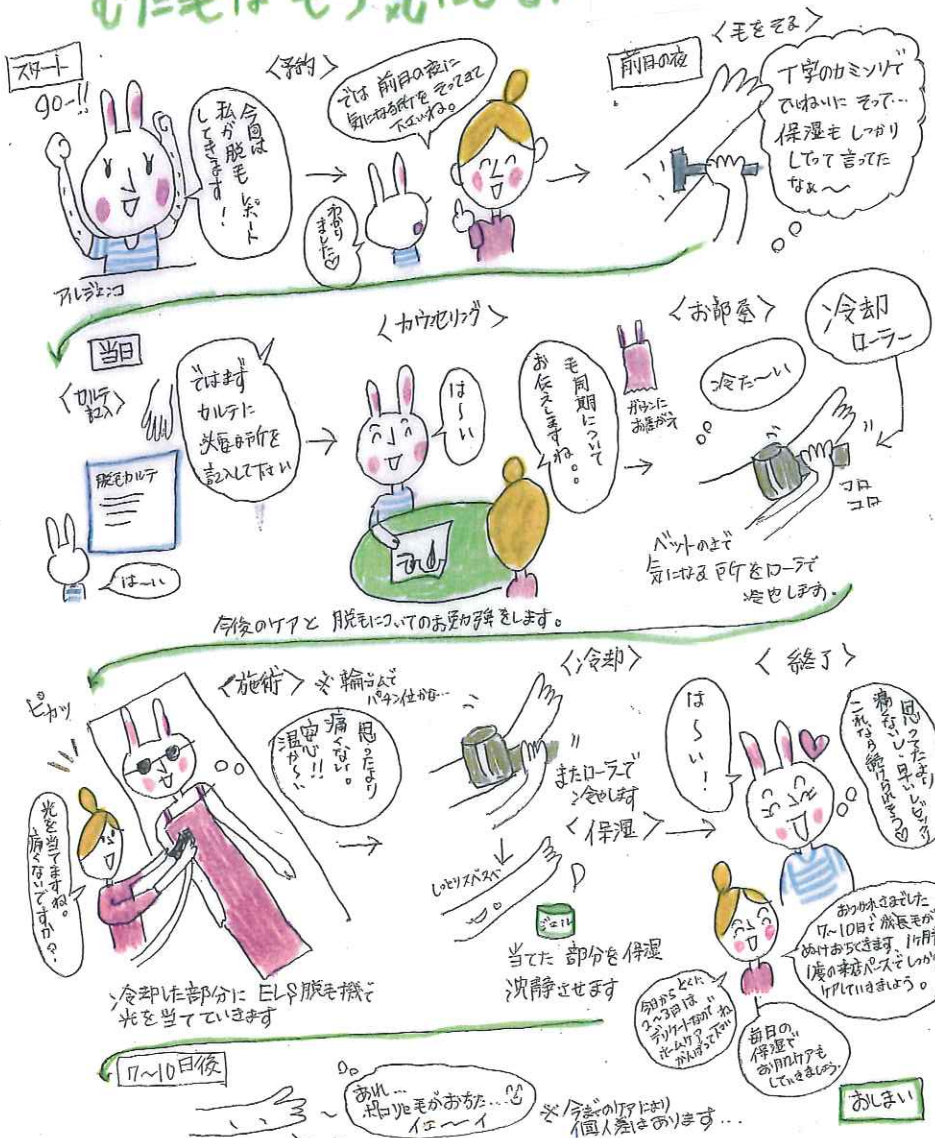 むだ毛はもう気にしない
スタート
go-!!
今回は
私が脱毛レポート
してきます!
アルジェンコ
〈予約〉
では 前日の夜に
気になる所を そってきて
下さいね。
わかり
ました♡
前日の夜
〈毛をそる〉
T字のカミソリで
ていねいに そって…
保湿も しっかり
してって 言ってた
なぁ〜
当日
〈カルテ
記入〉
脱毛カルテ
ではまず
カルテに
必要な所を
記入して下さい
は〜い
〈カウンセリング〉
は〜い
毛周期について
お伝えしますね。
今後のケアと 脱毛についてのお勉強をします。
〈お部屋〉
ガウンに
お着がえ
冷た〜い
冷却
ローラー
コロ
コロ
ベットの上で
気になる所をローラーで
冷やします。
ピカッ
〈施術〉
※輪ゴムで
パチン位かな…
思ったより
痛くない。
安心!!
温か〜い
光を当てますね。
痛くないですか?
冷却した部分に ELS脱毛機で
光を当てていきます
〈冷却〉
またローラーで
冷やします
〈保湿〉
しっとりスベスベ
ジェル
当てた 部分を保湿
沈静させます
〈終了〉
は〜い!
思ってたより
痛くないし、早いしビックリ
これなら続けられそう♡
おつかれさまでした
7〜10日で成長毛が
ぬけおちてきます、1ヶ月半
1度の来店ペースでしっかり
ケアしていきましょう。
今日からとくに
2〜3日は
デリケートなので
ホームケア
がんばって下さいね
毎日の
保湿で
お肌ケアも
していきましょう。
7〜10日後
あれ…
ポロリと毛がおちた…
イェ〜イ
※今までのケアにより
個人差はあります…
おしまい